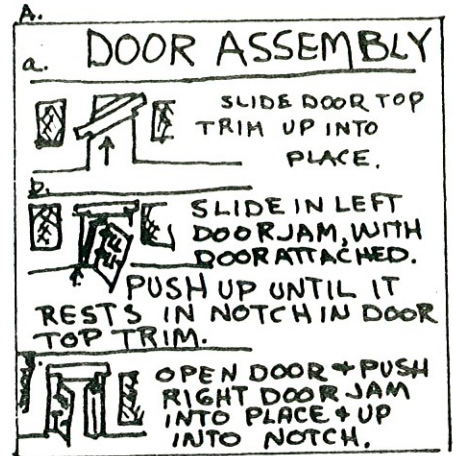 A.
a. DOOR ASSEMBLY
SLIDE DOOR TOP
TRIM UP INTO
PLACE.
b.
SLIDE IN LEFT
DOOR JAM, WITH
DOOR ATTACHED.
PUSH UP UNTIL IT
RESTS IN NOTCH IN DOOR
TOP TRIM.
OPEN DOOR + PUSH
RIGHT DOOR JAM
INTO PLACE + UP
INTO NOTCH.